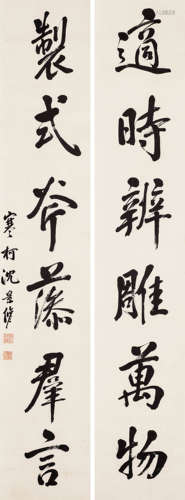 適時辨雕萬物
製式斧藻羣言
寒柯沈景修